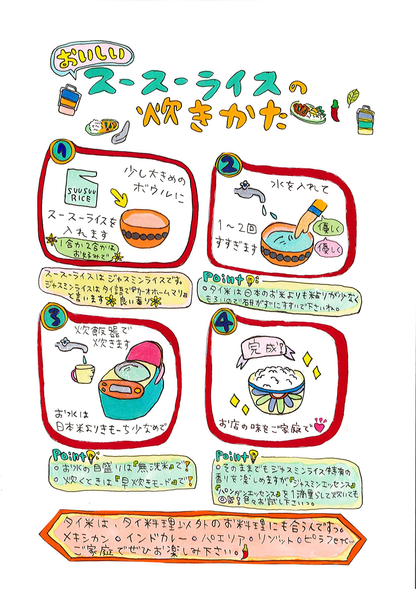 おいしい
スースーライスの
炊きかた
1
SUUSUU
RICE
少し大きめの
ボウルに
スースーライスを
入れます
1合か2合かは
お好みで
スースーライスはジャスミンライスです。
ジャスミンライスはタイ語で
と言います
良い香り
2
水を入れて
1〜2回
すすぎます
優しく
優しく
Point
タイ米は日本のお米よりも粘りが少なく
もろいので研がずにすすいで下さいね。
3
炊飯器で
炊きます
お水は
日本米よりきもーち少なめで
Point
お水の目盛りは『無洗米』で!
炊くときは『早炊きモード』で!
4
完成!
お店の味をご家庭で
Point
そのままでもジャスミンライス特有の
香りを楽しめますが『ジャスミンエッセンス』
『パンダンエッセンス』を1滴
お試し下さいっ。
タイ米は、タイ料理以外のお料理にも合うんですっ。
メキシカン○インドカレー○パエリア○リゾット○ピラフetc…
ご家庭でぜひお楽しみ下さい。